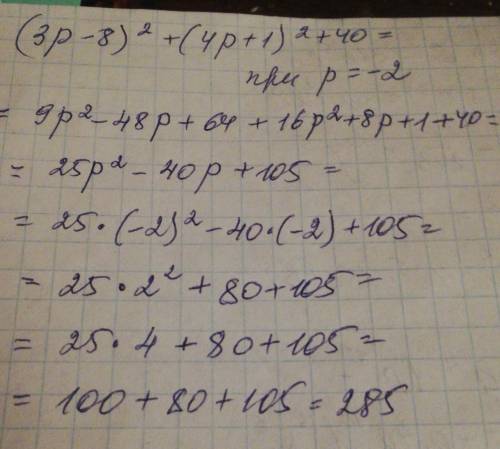 (3p-8)² + (4p+1)² + 40 =
при p = -2
= 9p² - 48p + 64 + 16p² + 8p + 1 + 40 =
= 25p² - 40p + 105 =
= 25·(-2)² - 40·(-2) + 105 =
= 25·2² + 80 + 105 =
= 25·4 + 80 + 105 =
= 100 + 80 + 105 = 285